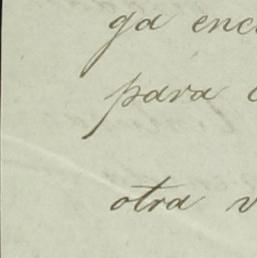 ga enc
para
otra v